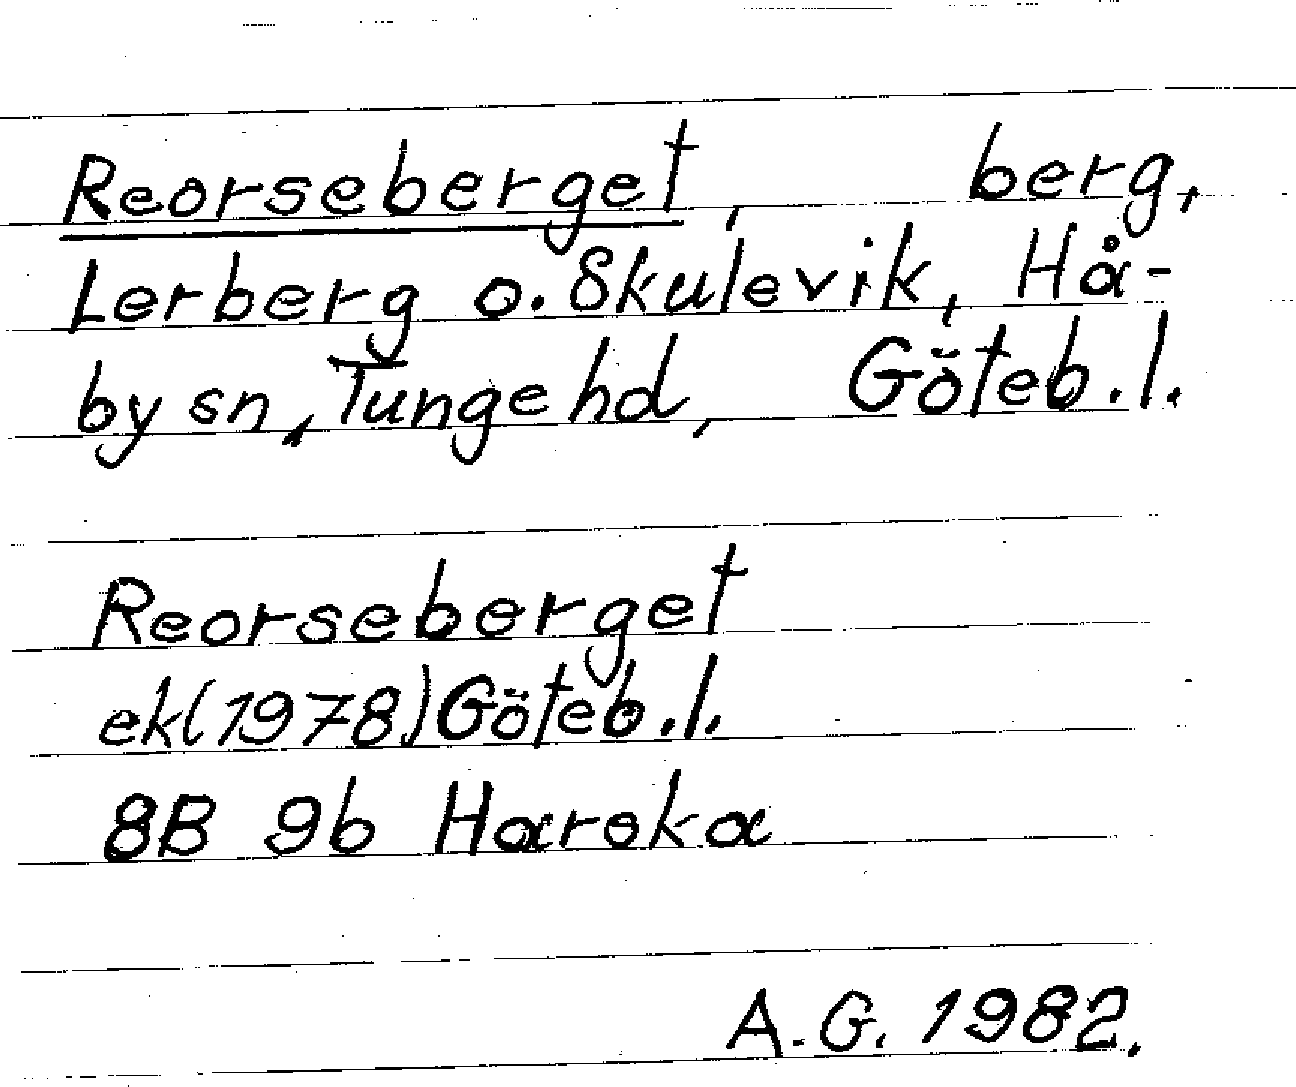 Reorseberget, berg,
Lerberg o. Skulevik, Hå-
by sn, Tunge hd, Göteb. l.
Reorseberget
ek(1978) Göteb. l.
8B 9b Hareka
A.G. 1982.